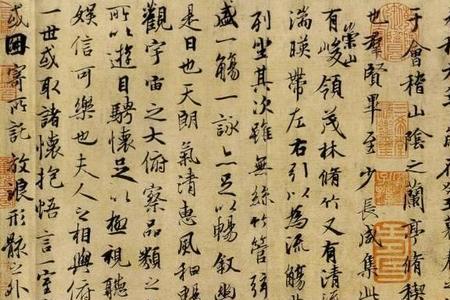 于會稽山陰之蘭亭脩稧
也羣賢畢至少長咸集
有崇山峻領茂林脩竹又有清流
湍暎帶左右引以為流觴
列坐其次雖無絲竹管弦
盛一觴一詠亦足以暢敘幽
是日也天朗氣清惠風和暢
觀宇宙之大俯察品類之
所以遊目騁懷足以極視聽
娛信可樂也夫人之相與俯
一世或取諸懷抱悟言一室
或因寄所託放浪形骸之外